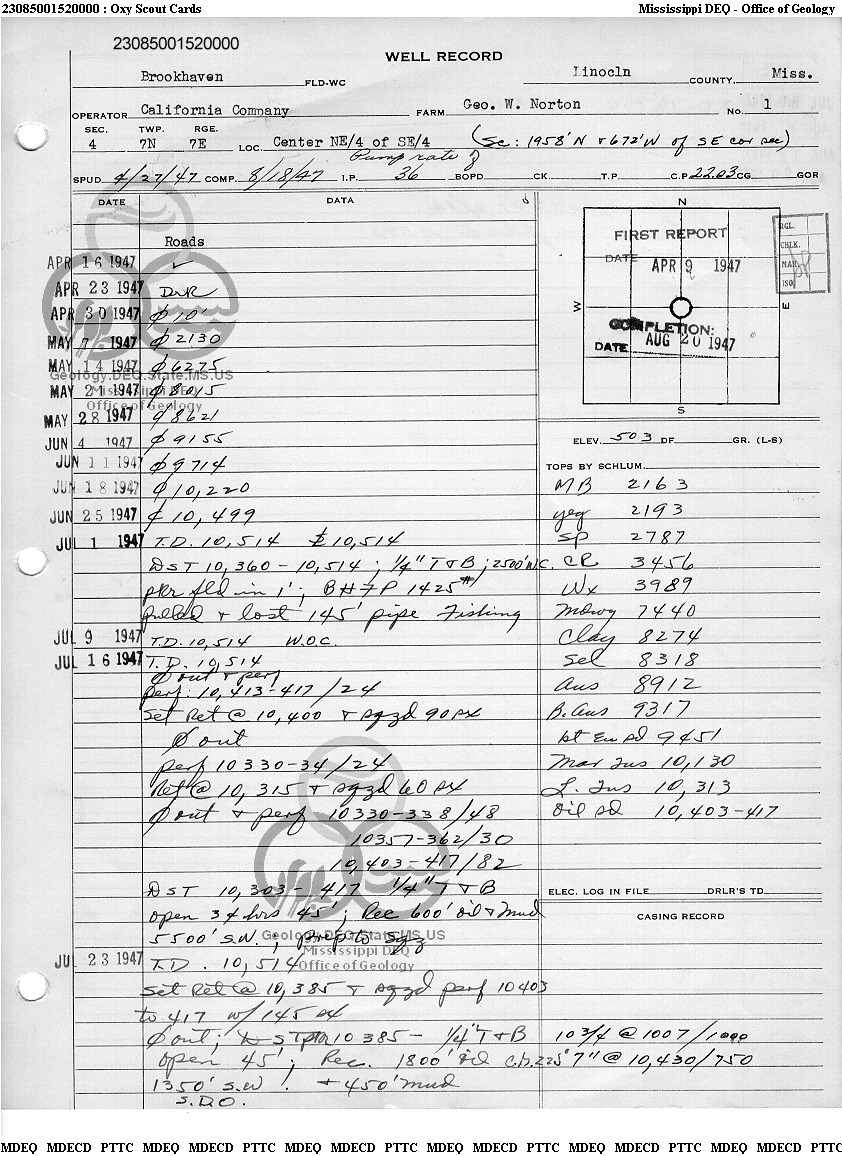 23085001520000 : Oxy Scout Cards Mississippi DEQ - Office of Geology
23085001520000
WELL RECORD
Brookhaven FLD-WC Linocln COUNTY, Miss.
OPERATOR California Company FARM Geo. W. Norton NO. 1
SEC. TWP. RGE.
4 7N 7E LOC. Center NE/4 of SE/4 (Sc: 1958'N + 672'W of SE cor sec)
Pump rate of
SPUD 4/27/47 COMP. 8/18/47 I.P. 36 BOPD CK. T.P. C.P 2203 CG GOR
DATE DATA
Roads
APR 16 1947 ✓
APR 23 1947 DUR
APR 30 1947 Ø 10'
MAY 7 1947 Ø 2130
MAY 14 1947 Ø 6275
MAY 21 1947 Ø 8015
MAY 28 1947 Ø 8621
JUN 4 1947 Ø 9155
JUN 11 1947 Ø 9714
JUN 18 1947 Ø 10,220
JUN 25 1947 Ø 10,499
JUL 1 1947 T.D. 10,514 10,514
DST 10,360 - 10,514; 1/4" T & B; 2500' W.C.
pkr fld in 1'; BHFP 1425#
pulled + lost 145' pipe Fishing
JUL 9 1947 T.D. 10,514 W.O.C.
JUL 16 1947 T.D. 10,514
Ø out + perf
perf: 10,413-417/24
Set Ret @ 10,400 + sqzd 90 sx
Ø out
perf 10330-34/24
Ret @ 10,315 + sqzd 60 sx
Ø out + perf 10330-338/48
10357-362/30
10,403-417/82
DST 10,303-417 1/4" T & B
open 3 45'; Rec 600' oil + mud
5500' S.W.; prep to sqz
JUL 23 1947 T.D. 10,514
Set Ret @ 10,385 + sqzd perf 10403
to 417 w/ 145 sx
Ø out; DST 10385 - 1/4" T & B
open 45'; Rec. 1800' fld
1350' S.W. + 450' mud
S.D.O.
Geology.DEQ.State.MS.US
Mississippi DEQ
Office of Geology
Geology.DEQ.State.MS.US
Mississippi DEQ
Office of Geology
N
W
E
S
FIRST REPORT
DATE APR 9 1947
COMPLETION:
DATE AUG 20 1947
RGL.
CHLK.
MAR.
ISO.
ELEV. 503 DF GR. (L-S)
TOPS BY SCHLUM.
MB 2163
yeg 2193
SP 2787
CR 3456
Wx 3989
Mdwy 7440
Clay 8274
Sel 8318
Aus 8912
B. Aus 9317
Eu sd 9451
Mar Tus 10,130
L. Tus 10,313
Oil sd 10,403-417
ELEC. LOG IN FILE DRLR'S TD
CASING RECORD
10 3/4 @ 1007/1000
7" @ 10,430/750
MDEQ MDECD PTTC MDEQ MDECD PTTC MDEQ MDECD PTTC MDEQ MDECD PTTC MDEQ MDECD PTTC MDEQ MDECD PTTC